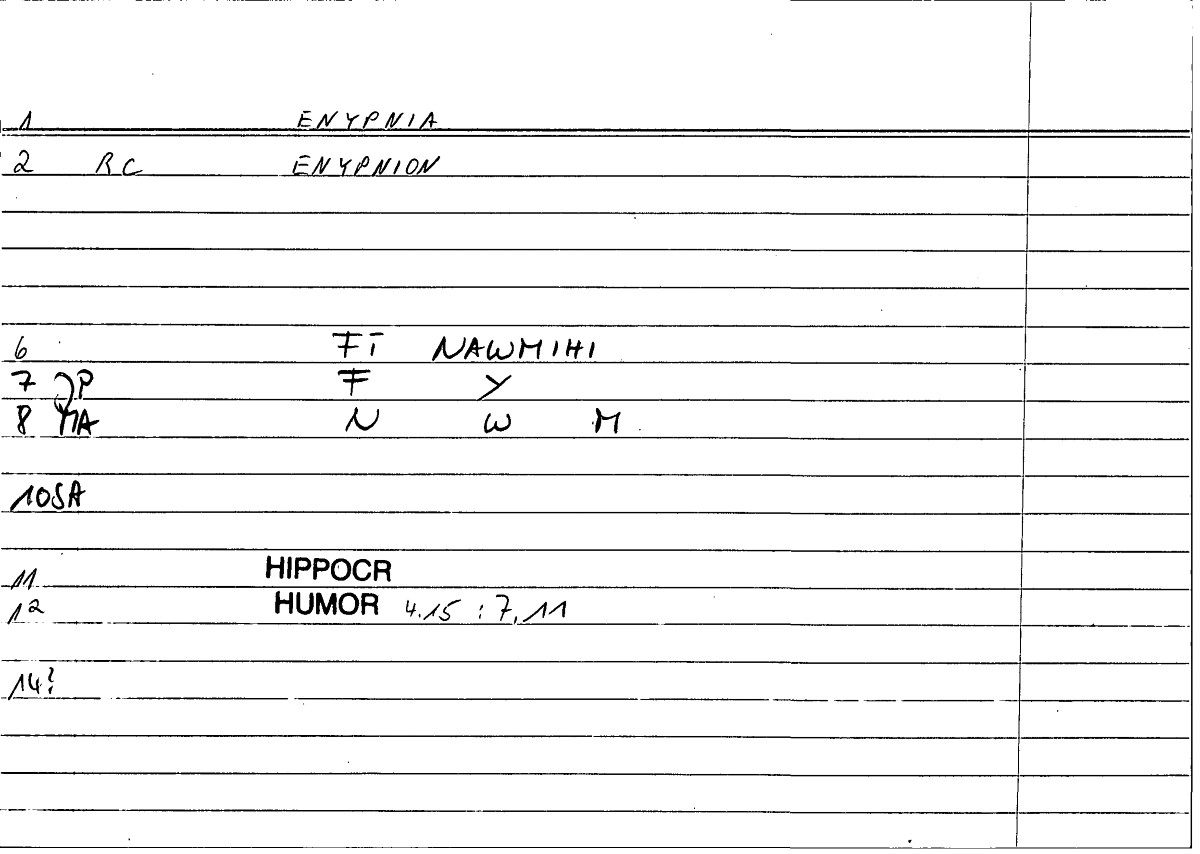 1 ENYPNIA
2 RC ENYPNION
6 FI NAWMIHI
7 P F Y
8 MA N W M
10SA
11 HIPPOCR
12 HUMOR 4.15 : 7, 11
14?